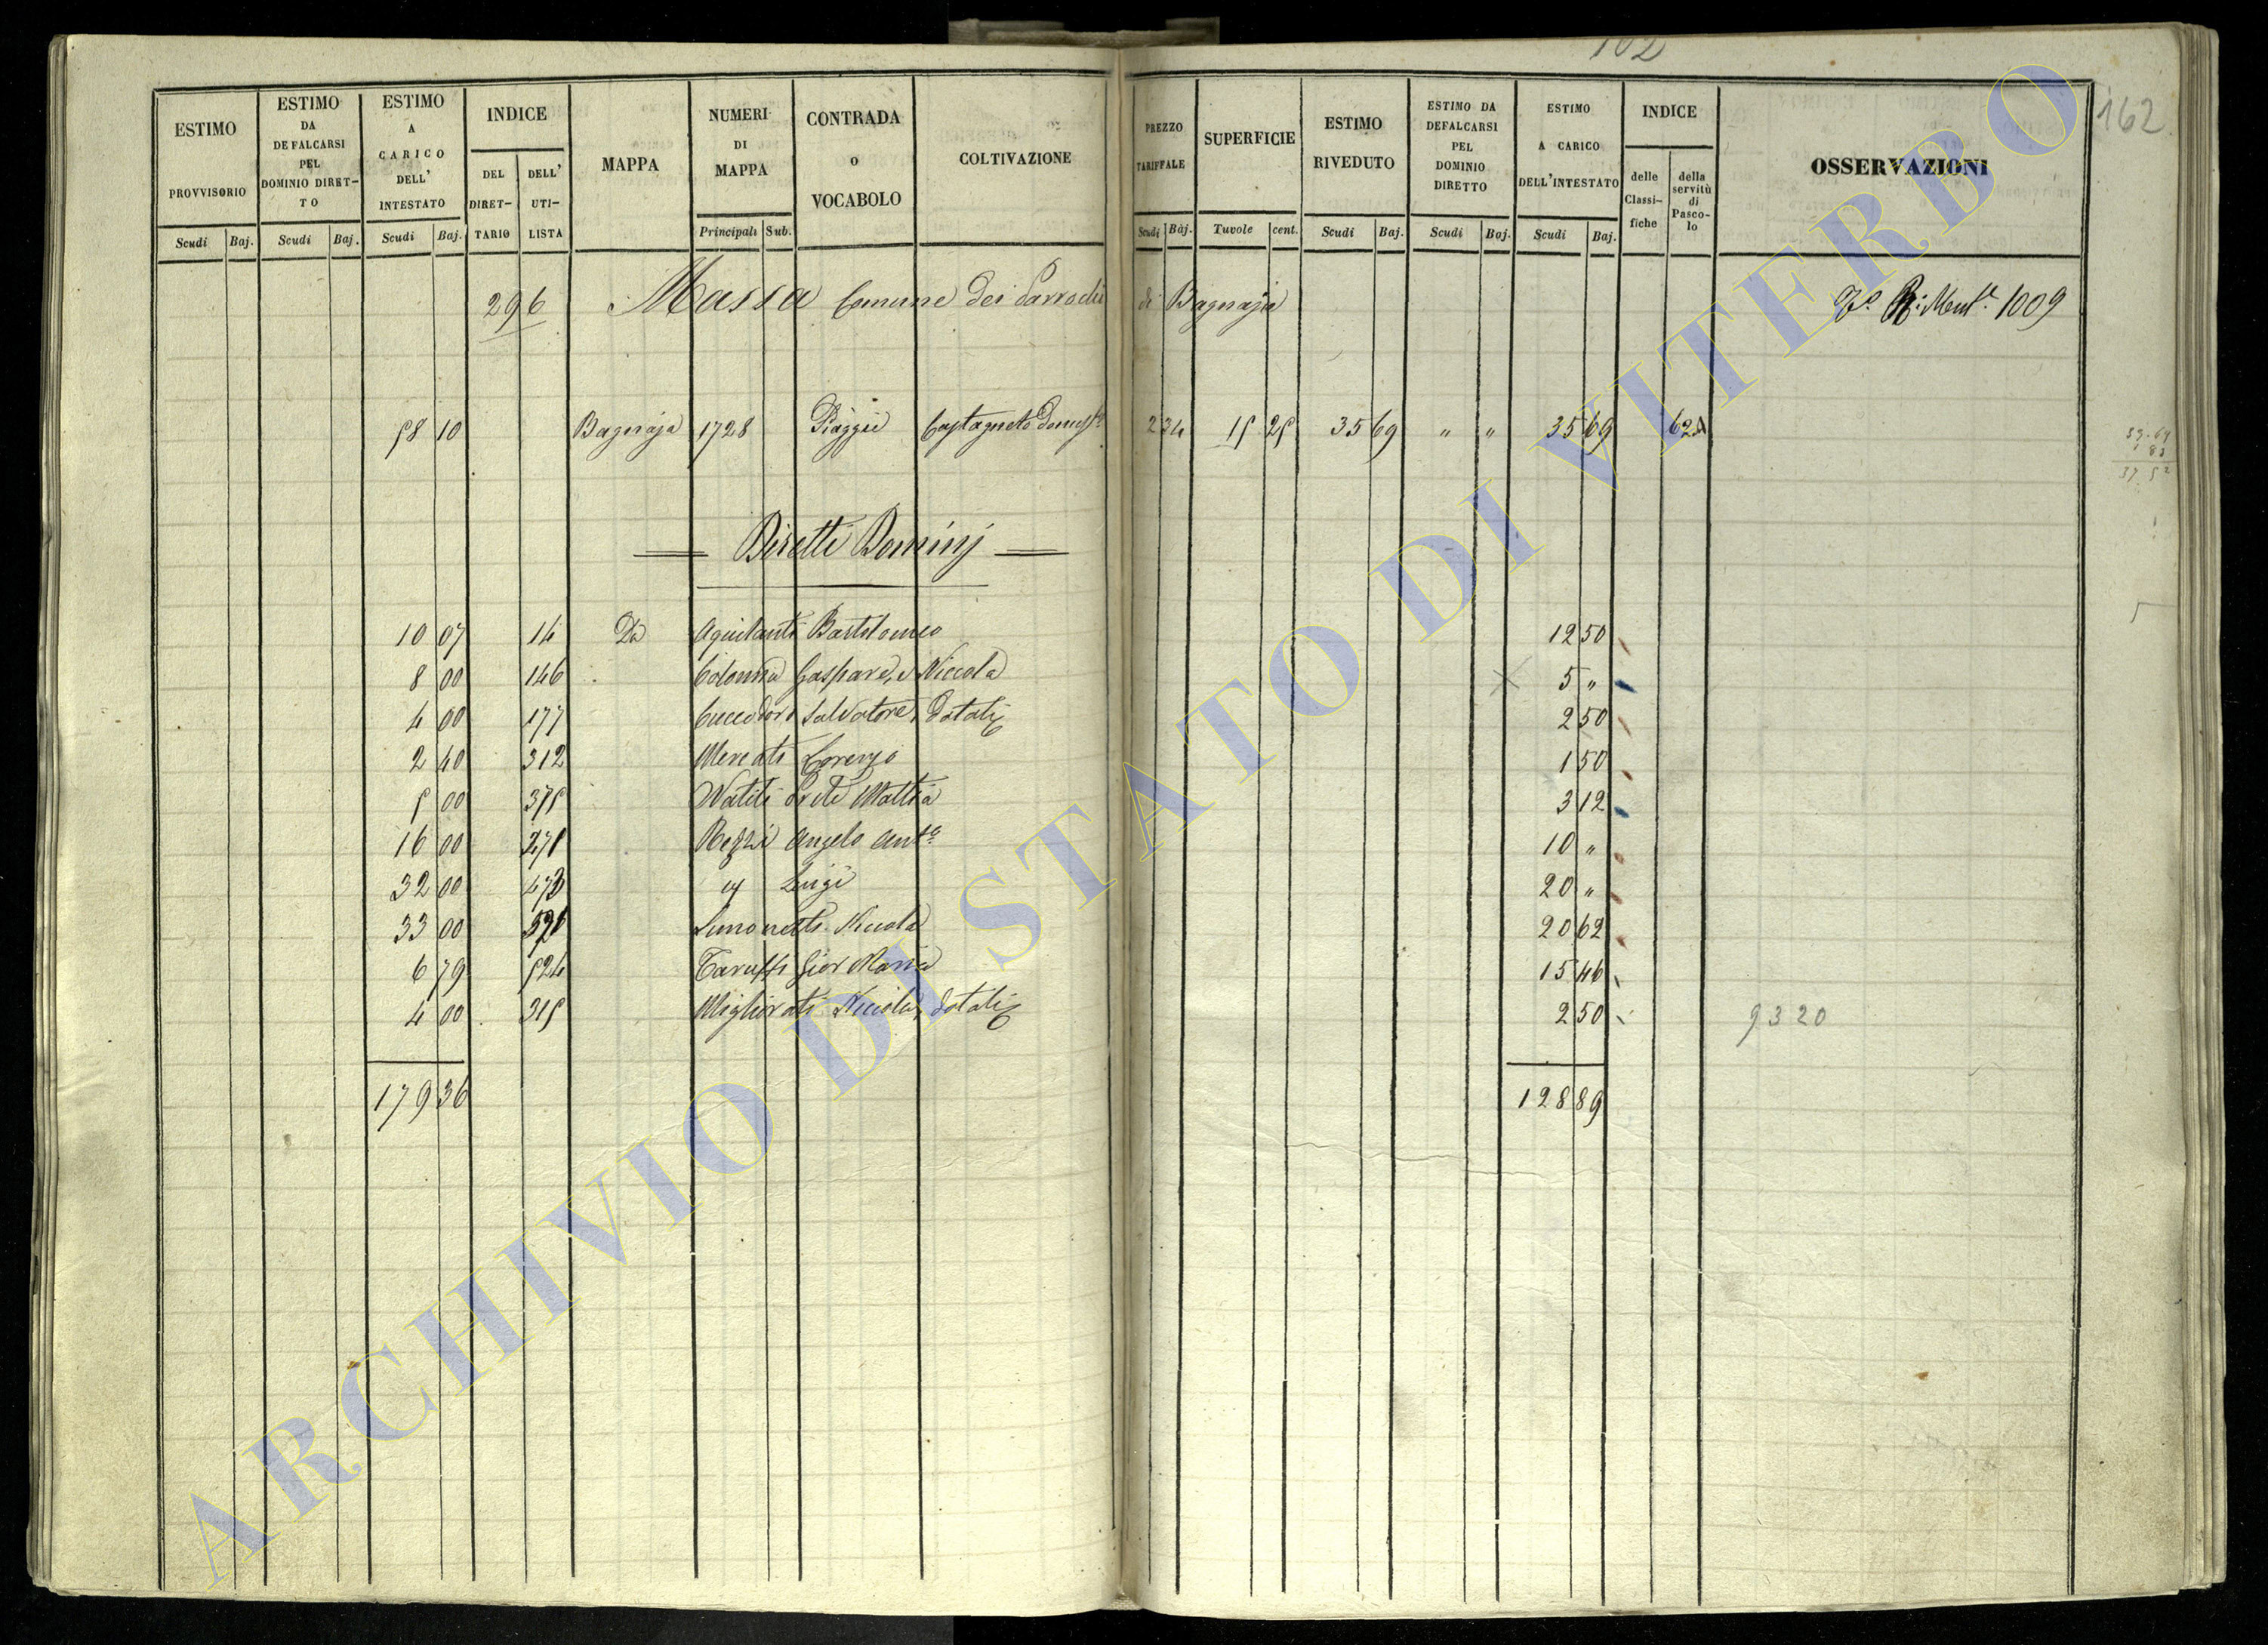 102
162
ESTIMO PROVVISORIO Scudi Baj.
ESTIMO DA DEFALCARSI PEL DOMINIO DIRETTO Scudi Baj.
ESTIMO A CARICO DELL' INTESTATO Scudi Baj.
INDICE DEL DIRETTARIO DELL' UTILISTA
MAPPA
NUMERI DI MAPPA Principali Sub.
CONTRADA o VOCABOLO
COLTIVAZIONE
PREZZO TARIFFALE Scudi Baj.
SUPERFICIE Tavole cent.
ESTIMO RIVEDUTO Scudi Baj.
ESTIMO DA DEFALCARSI PEL DOMINIO DIRETTO Scudi Baj.
ESTIMO A CARICO DELL'INTESTATO Scudi Baj.
INDICE delle Classifiche della servitù di Pascolo
OSSERVAZIONI
296 Massa Comune dei Parrochi di Bagnaja 1009
58 10 Bagnaja 1728 Piaggie Castagneto Domest° 2 34 15 25 35 69 " " 35 69 62
Diretti Dominj
10 07 14 Da Aquilanti Bartolomeo 12 50
8 00 146 Colonna Gaspare, e Niccola 5 "
4 00 177 Salvatore, Dotali 2 50
2 40 312 Mercati Lorenzo 1 50
5 00 375 Natili Mattia 3 12
16 00 471 Rezzi Angelo Ant° 10 "
32 00 473 " Luigi 20 "
33 00 Simonetti Niccola 20 62
6 79 524 Taruffi Gior Maria 15 46
4 00 315 Migliorati Niccola, dotali 2 50 9320
179 36 128 89
37 52
ARCHIVIO DI STATO DI VITERBO